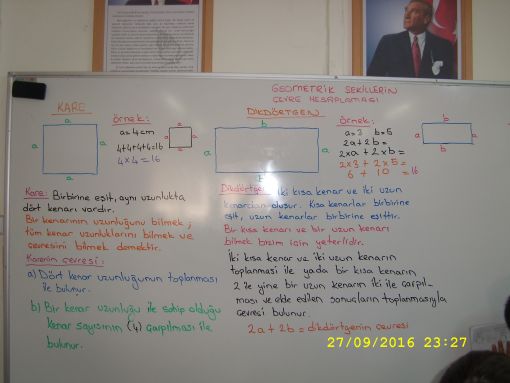 GEOMETRİK ŞEKİLLERİN
ÇEVRE HESAPLAMASI
KARE
a
a
a
a
Örnek:
a=4cm
4+4+4+4=16
4x4=16
a
a
a
a
Kare: Birbirine eşit, aynı uzunlukta
dört kenarı vardır.
Bir kenarının uzunluğunu bilmek;
tüm kenar uzunluklarını bilmek ve
çevresini bilmek demektir.
Karenin çevresi:
a) Dört kenar uzunluğunun toplanması
ile bulunur.
b) Bir kenar uzunluğu ile sahip olduğu
kenar sayısının (4) çarpılması ile
bulunur.
DİKDÖRTGEN
b
a
a
b
Örnek:
a=3 b=5
2a+2b=
2xa+2xb=
2x3+2x5=
6 + 10 =16
b
a
a
b
Dikdörtgen: İki kısa kenar ve iki uzun
kenardan oluşur. Kısa kenarlar birbirine
eşit, uzun kenarlar birbirine eşittir.
Bir kısa kenarı ve bir uzun kenarı
bilmek bizim için yeterlidir.
İki kısa kenar ve iki uzun kenarın
toplanması ile ya da bir kısa kenarın
2 ile yine bir uzun kenarın iki ile çarpıl-
ması ve elde edilen sonuçların toplanmasıyla
çevresi bulunur.
2a+2b=dikdörtgenin çevresi
27/09/2016 23:27